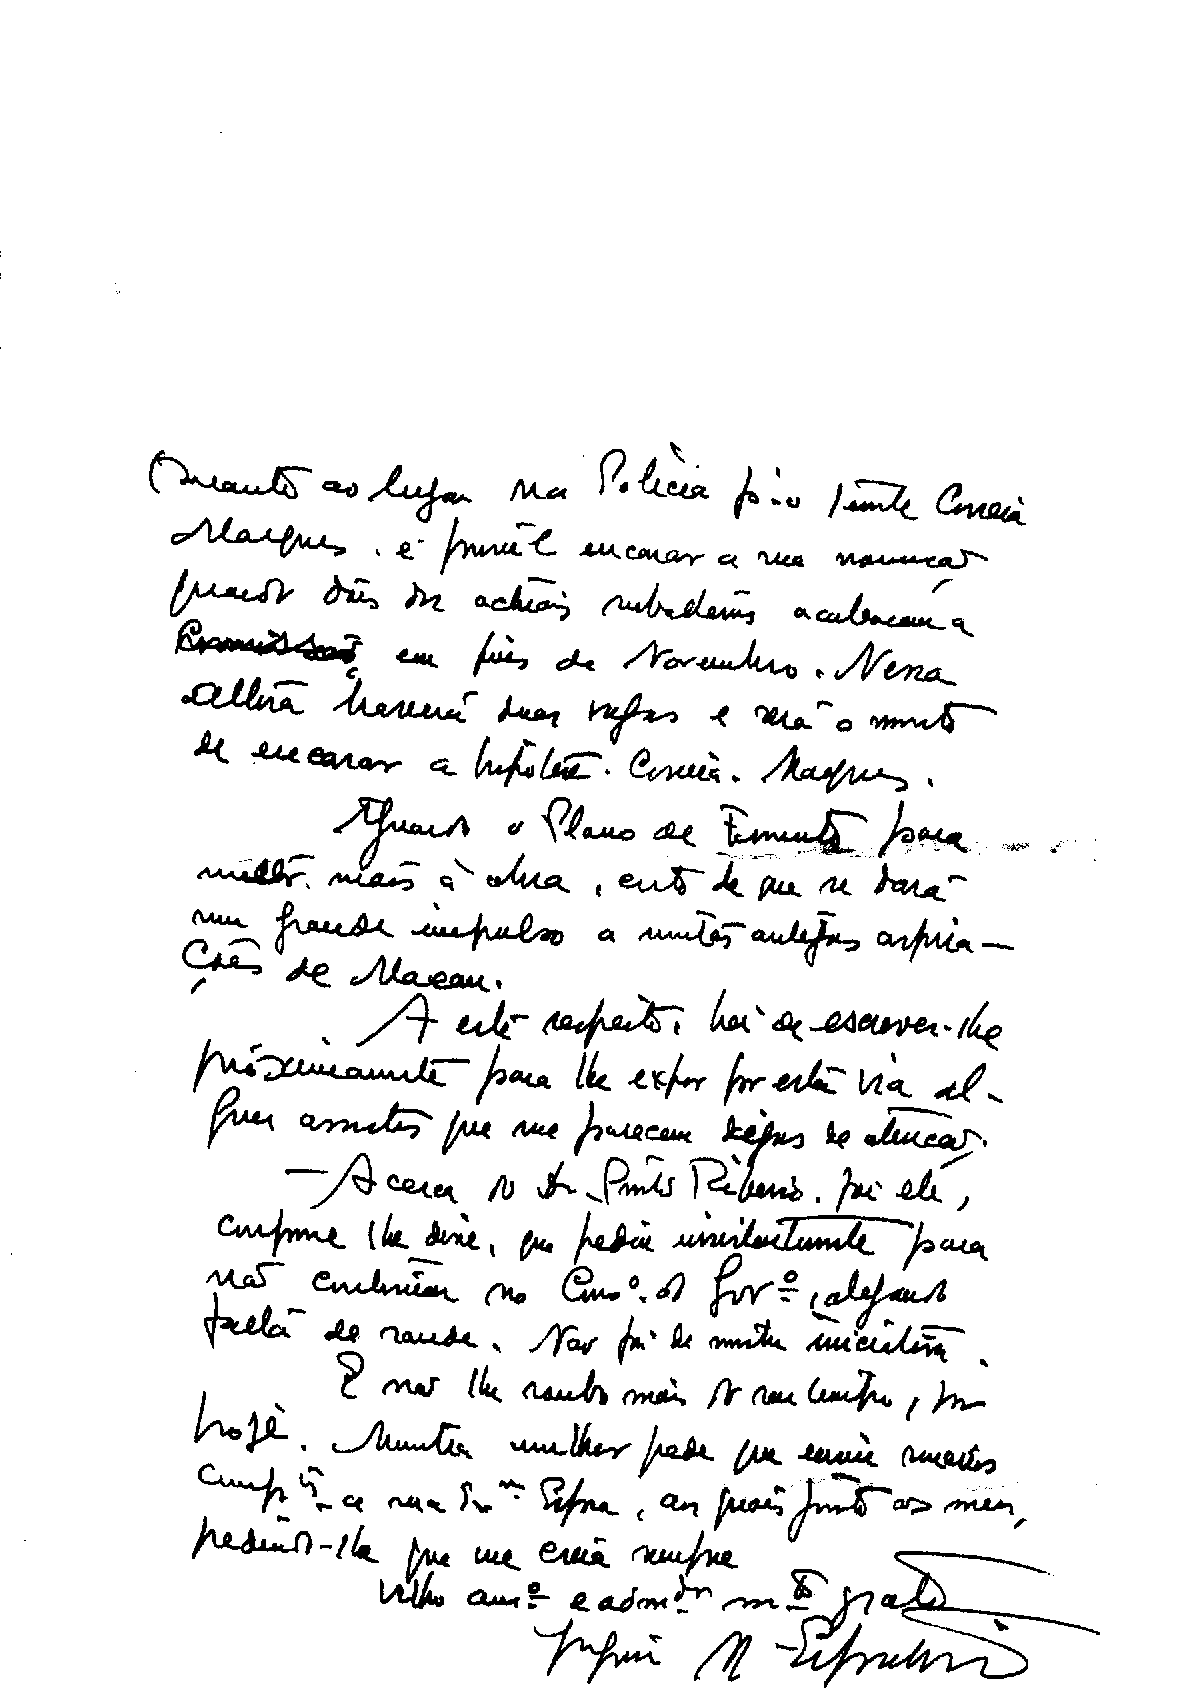 Quanto ao lugar na Polícia p.ª o Tenente Correia
Marques, é possível encarar a sua nomeação
quando dois dos actuais subalternos acabarem a
comissão, em fins de Novembro. Nessa
altura haverá duas vagas e será o momento
de encarar a hipótese Correia Marques.
Aguardo o Plano de Fomento para
meter mais à obra, certo de que se dará
um grande impulso a muitas antigas aspira-
ções de Macau.
A este respeito, hei de escrever-lhe
próximamente para lhe expor por esta via al-
guns assuntos que me parecem dignos de atenção.
— Acerca do Dr. Pinto Ribeiro, foi ele,
conforme lhe disse, que pediu insistentemente para
não continuar no Cons.º do Gov.º, alegando
falta de saude. Não foi de minha iniciativa.
E não lhe roubo mais do seu tempo, por
hoje. Minha mulher pede que envie
cump.tos a sua Ex.ma Esposa, aos quais junto os meus,
pedindo-lhe que me creia sempre
velho am.º e adm.dor m.to grato